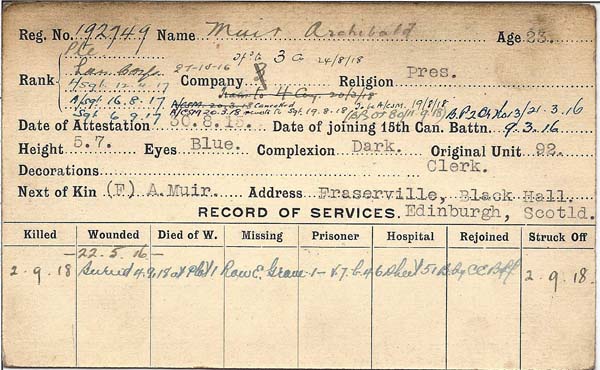 Reg. No. 192749 Name Muir Archibald Age 23.
Pte
27-10-16 Tfd to 3 Co 24/8/18
Rank Company Religion Pres.
A/Sgt 16.8.17 4 Coy. 20/3/18
Sgt 6.9.17 A/CSM 20.3.18 Sgt. 19.8.18 To be A/CSM. 19/8/18
Date of Attestation 30.8.15. Date of joining 15th Can. Battn. 9.3.16
Height 5.7. Eyes Blue. Complexion Dark. Original Unit 92.
Decorations Clerk.
Next of Kin (F) A. Muir. Address Fraserville, Black Hall.
RECORD OF SERVICES. Edinburgh, Scotld.
Killed Wounded Died of W. Missing Prisoner Hospital Rejoined Struck Off
-22.5.16-
2.9.18 Buried 4.9.18 at Plot 1 Row E. Grave 1- Sheet 51B 2.9.18.